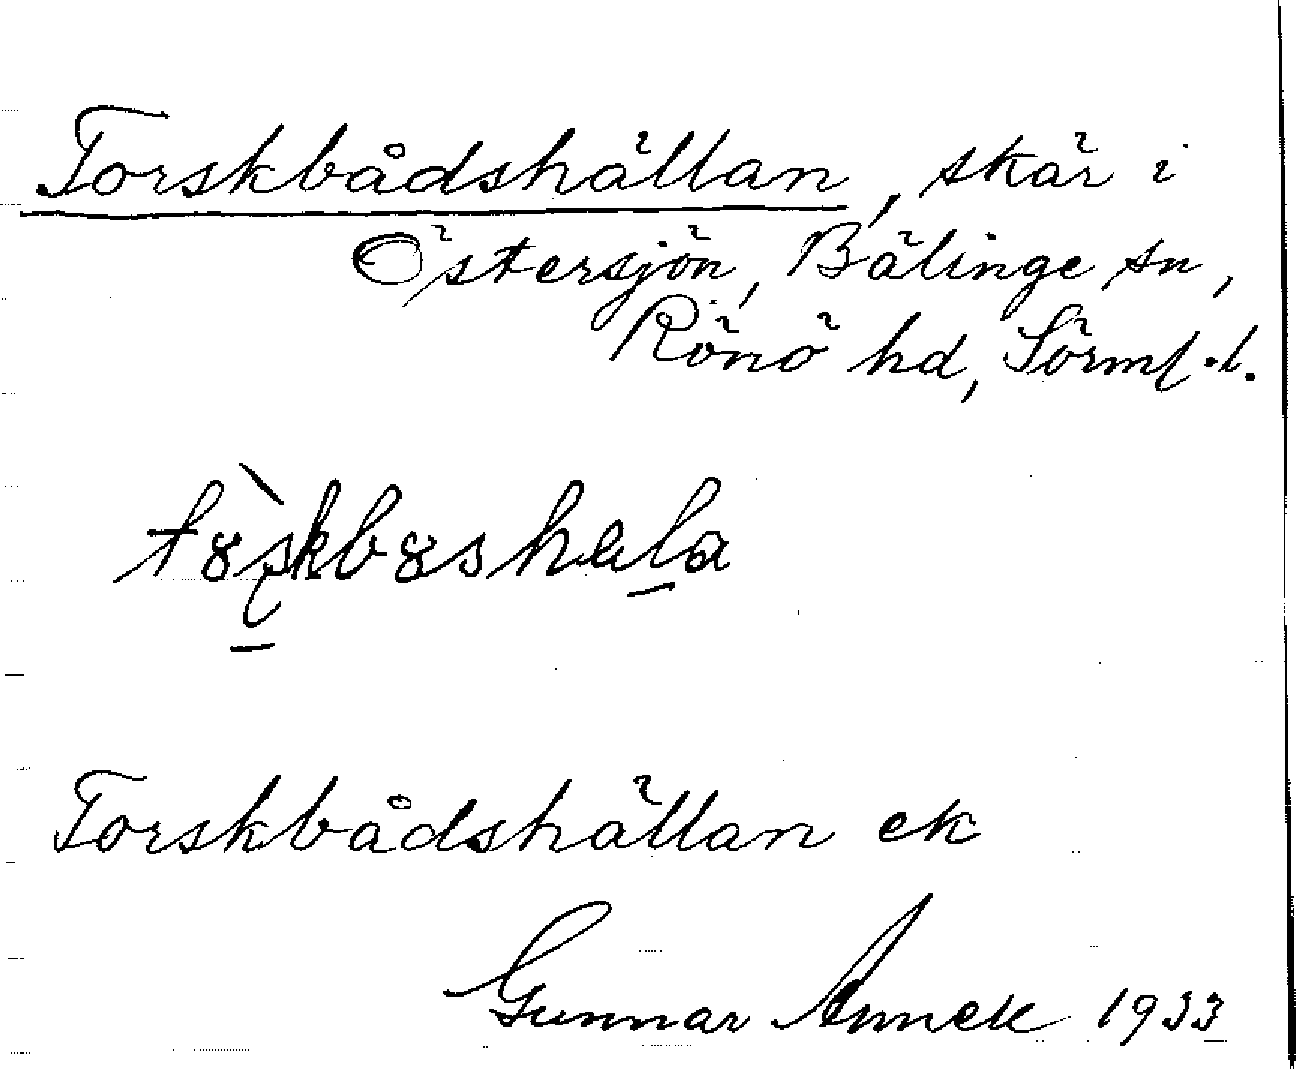 Torskbådshällan, skär i
Östersjön, Bälinge sn,
Rönö hd, Sörml. l.
Torskbådshällan ek
Gunnar Annek 1933